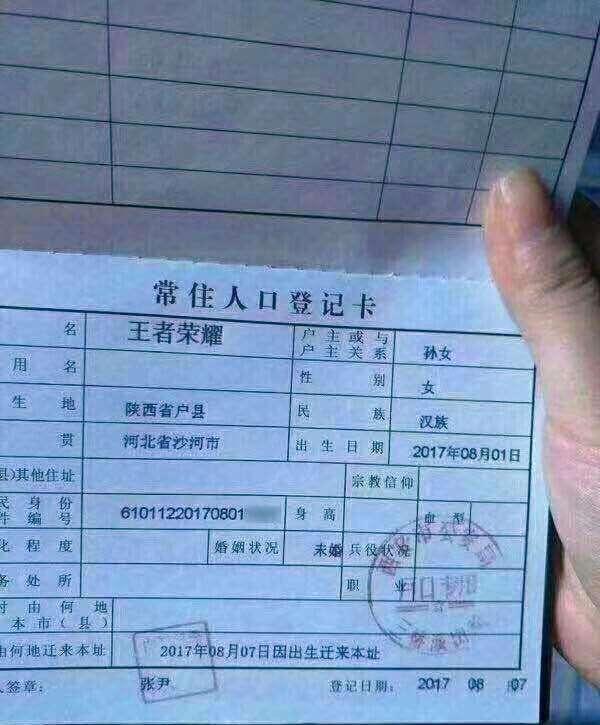 常住人口登记卡
名 王者荣耀 户主或与户主关系 孙女
用名 性别 女
生地 陕西省户县 民族 汉族
贯 河北省沙河市 出生日期 2017年08月01日
县)其他住址 宗教信仰
民身份件编号 61011220170801 身高 血型
化程度 婚姻状况 未婚 兵役状况
务处所 职业
时由何地
本市(县)
由何地迁来本址 2017年08月07日因出生迁来本址
人签章: 张尹 登记日期: 2017 08 月 07